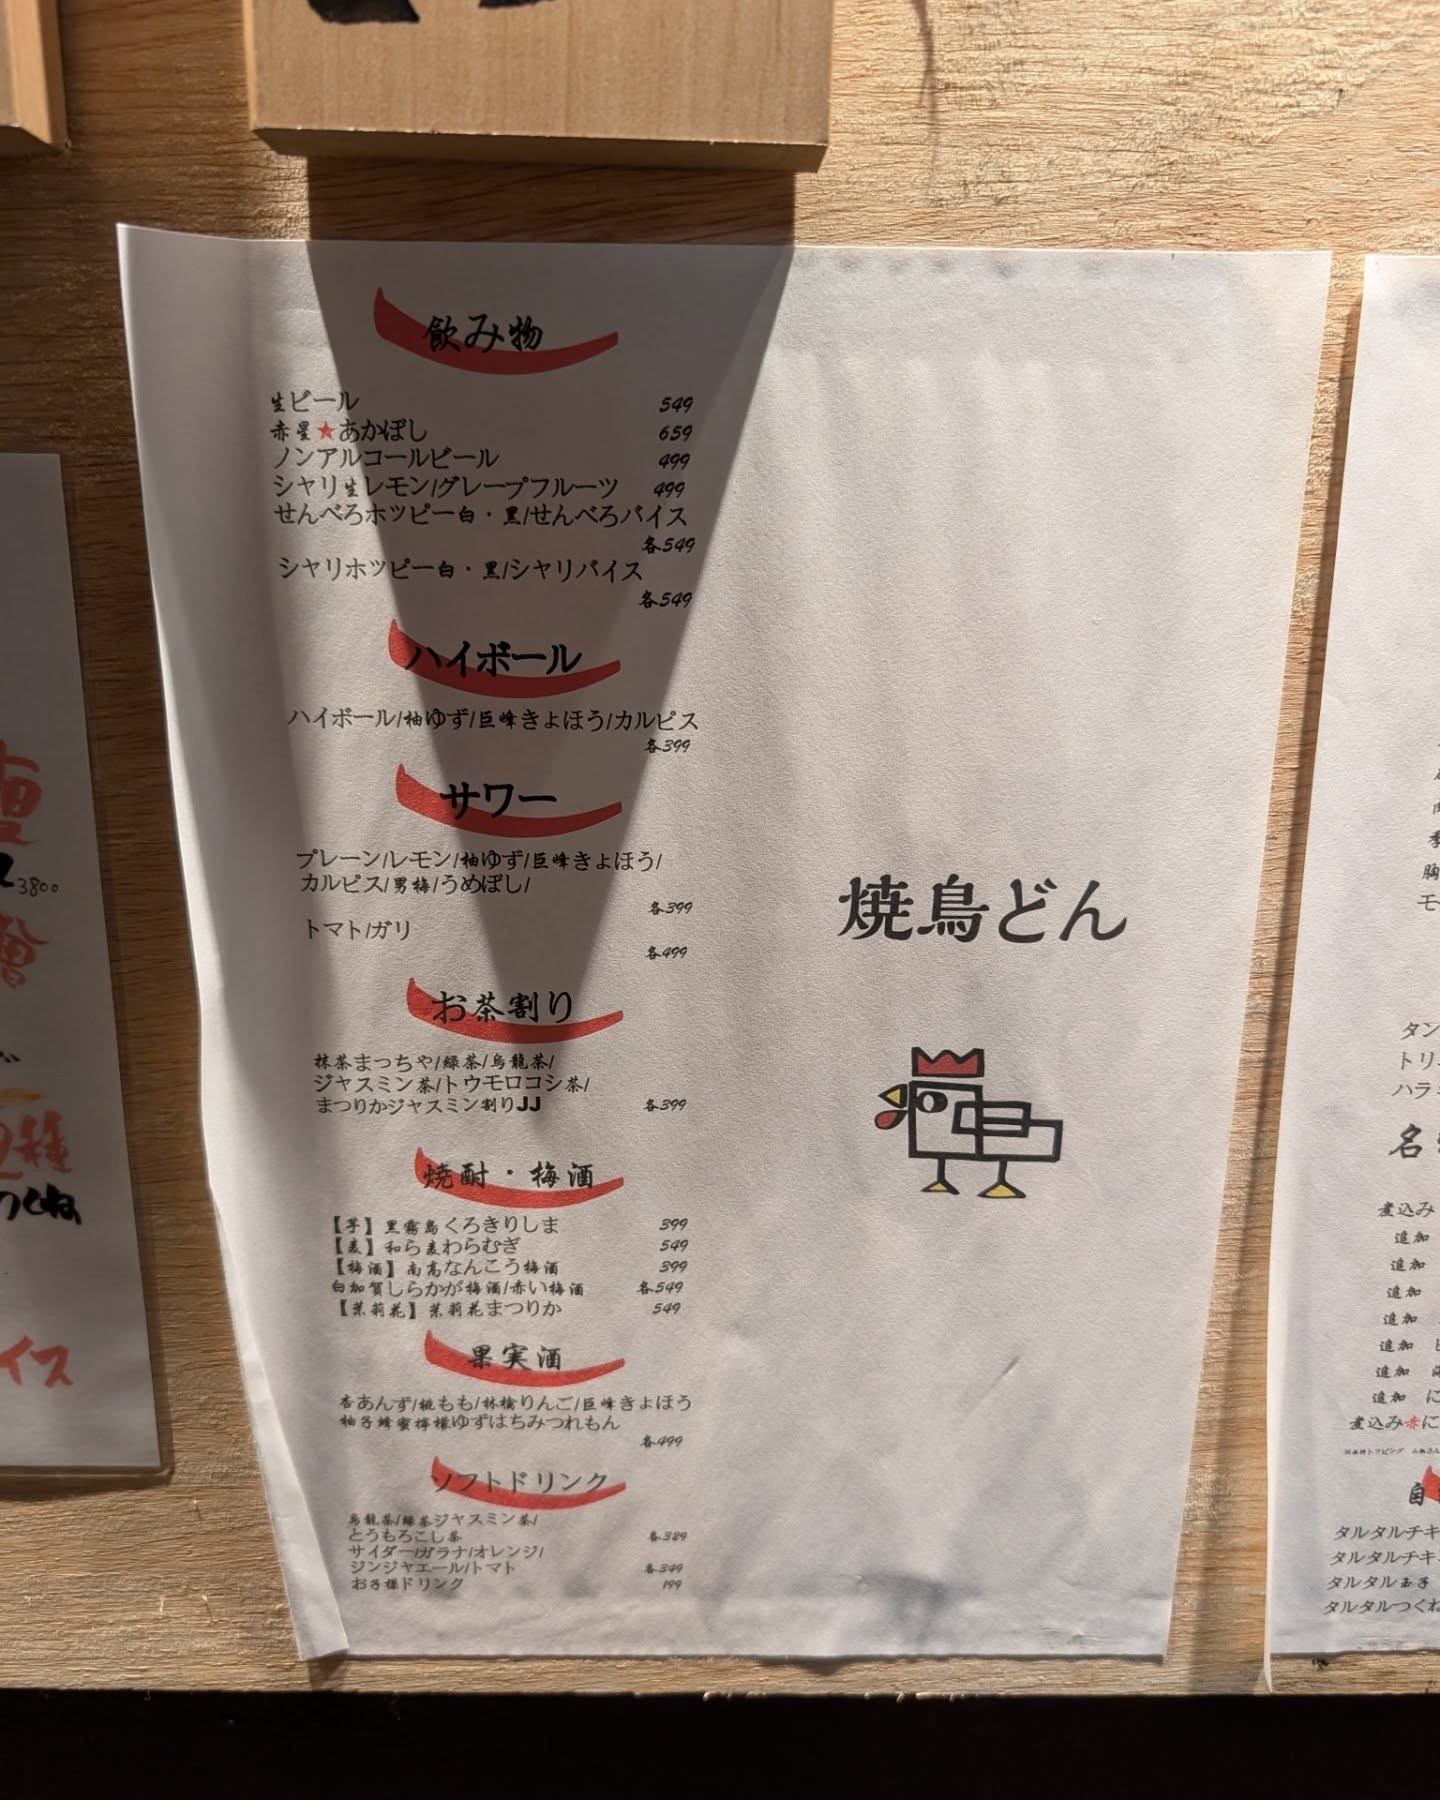 飲み物
生ビール 549
赤星★あかぼし 659
ノンアルコールビール 499
シャリ生レモン/グレープフルーツ 499
せんべろホッピー白・黒/せんべろバイス
各549
シャリホッピー白・黒/シャリバイス
各549
ハイボール
ハイボール/柚ゆず/巨峰きょほう/カルピス
各399
サワー
プレーン/レモン/柚ゆず/巨峰きょほう/
カルピス/男梅/うめぼし/
各399
トマト/ガリ
各499
お茶割り
抹茶まっちゃ/緑茶/烏龍茶/
ジャスミン茶/トウモロコシ茶/
まつりかジャスミン割りJJ 各399
焼酎・梅酒
【芋】黒霧島くろきりしま 399
【麦】和ら麦わらむぎ 549
【梅酒】南高なんこう梅酒 399
白加賀しらかが梅酒/赤い梅酒 各549
【茉莉花】茉莉花まつりか 549
果実酒
杏あんず/桃もも/林檎りんご/巨峰きょほう
柚子蜂蜜檸檬ゆずはちみつれもん
各499
ソフトドリンク
烏龍茶/緑茶ジャスミン茶/
とうもろこし茶 各389
サイダー/ガラナ/オレンジ/
ジンジャエール/トマト 各349
お子様ドリンク 199
焼鳥どん
3800
2種
つくね
イス
胸
モ
タン
トリ
ハラ
名
煮込み
追加
追加
追加
追加
追加
追加
追加 に
煮込み赤に
タルタルチキ
タルタルチキ
タルタル玉子
タルタルつくね